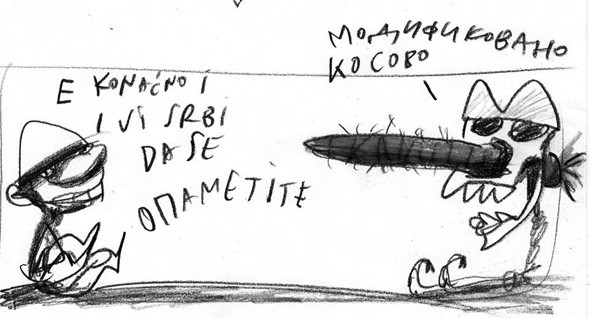 E KONAČNO I
I VI SRBI
DA SE
OПAMETITE
МОДИФИКОВАНО
КОСОВО